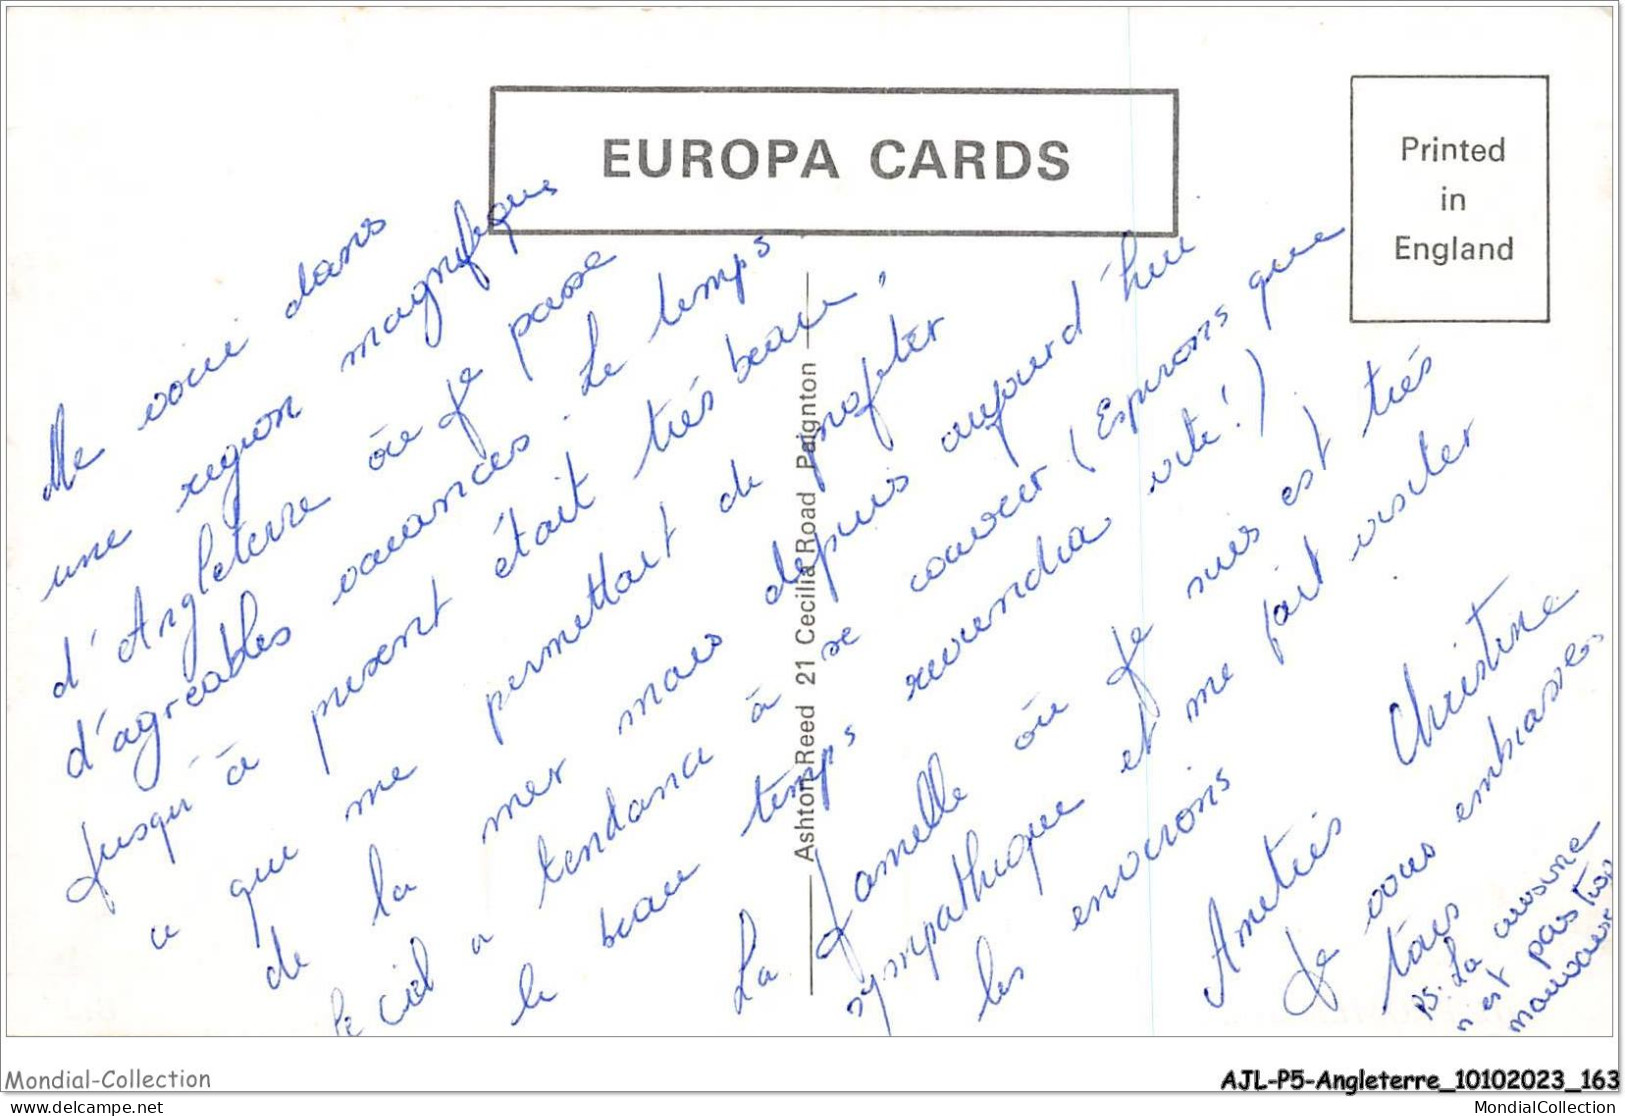 EUROPA CARDS
Printed
in
England
Me voici dans
une region magnifique
d'Angleterre où je passe
d'agréables vacances. Le temps
jusqu'à present était très beau,
ce qui me permettait de profiter
de la mer mais depuis aujourd'hui
le ciel a tendance à se couvrir (Esperons que
le beau temps reviendra vite!)
La famille où je suis est très
sympathique et me fait visiter
les environs
Amitiés Christine
Je vous embrasses
tous
PS. La cuisine
n'est pas trop
mauvaise
Ashton-Reed 21 Cecilia Road Paignton
Mondial-Collection
AJL-P5-Angleterre_10102023_163
delcampe.net
MondialCollection